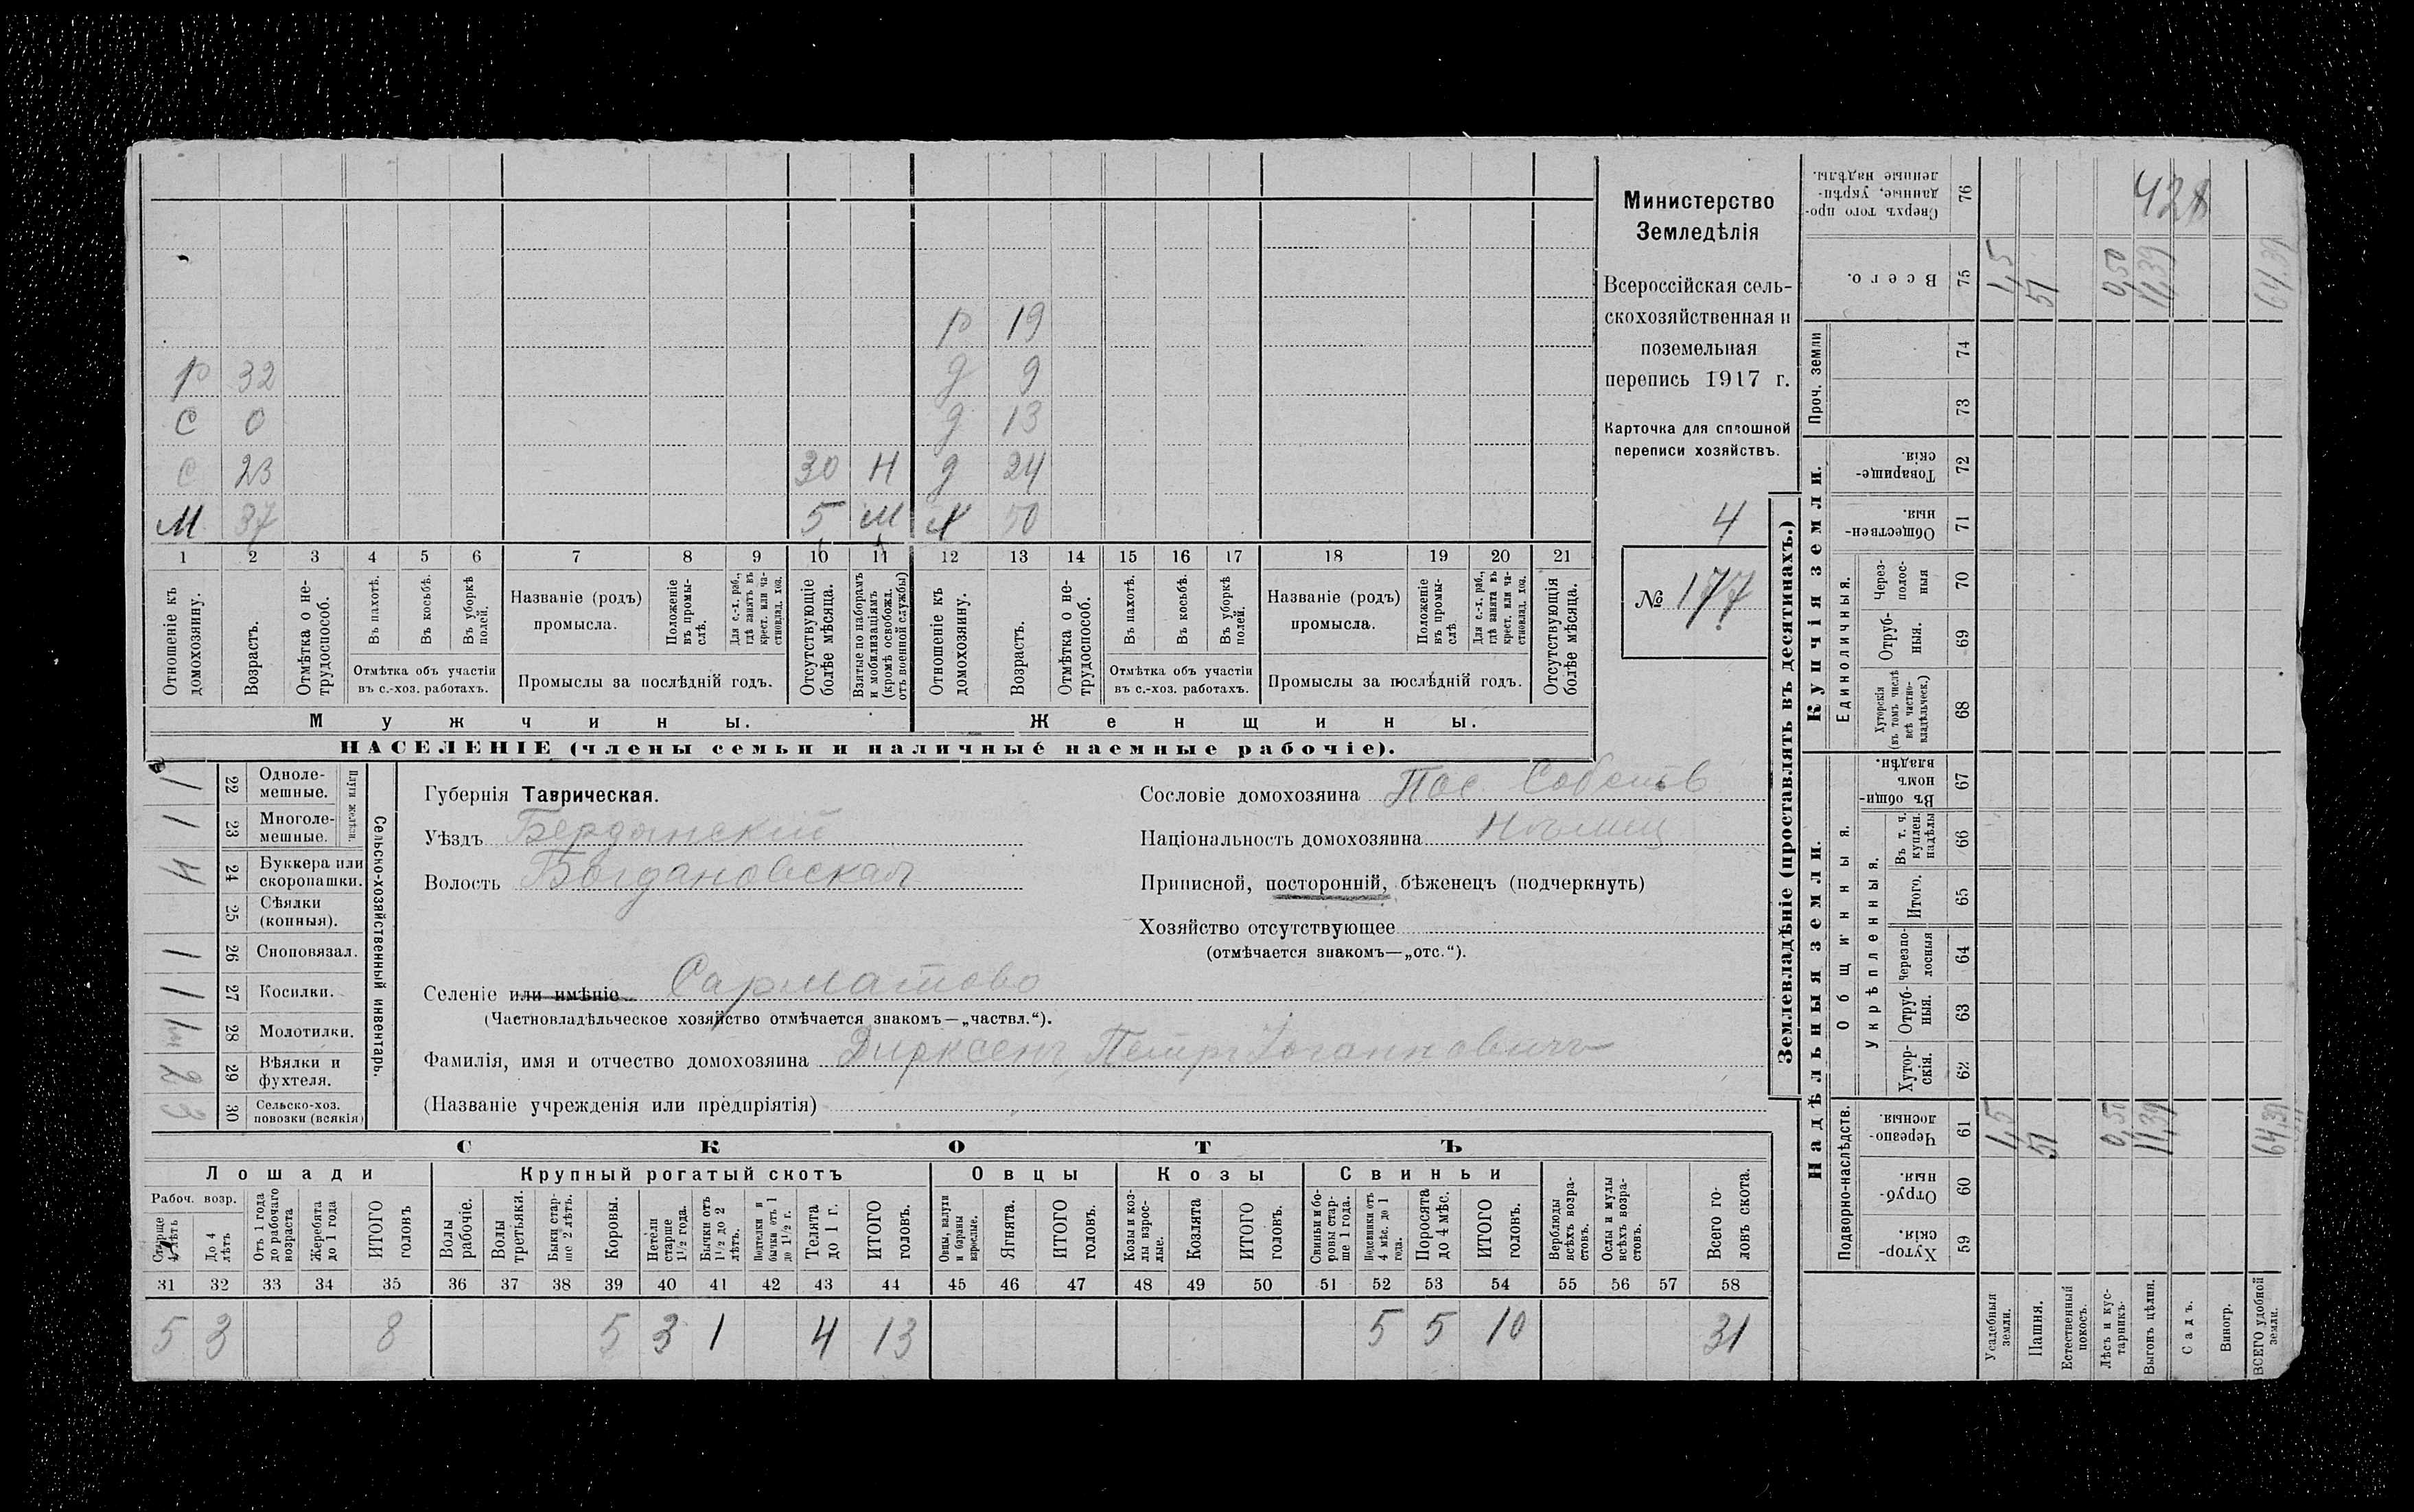 р 19
р 32 д 9
с 0 д 13
с 23 30 Н д 24
М 37 5 М Х 50
1 2 3 4 5 6 7 8 9 10 11 12 13 14 15 16 17 18 19 20 21
Отношеніе къ домохозяину.
Возрастъ.
Отмѣтка о не-
трудоспособ.
Въ пахотѣ.
Въ косьбѣ.
Въ уборкѣ
полей.
Отмѣтка объ участіи
въ с.-хоз. работахъ.
Названіе (родъ)
промысла.
Положеніе
въ промы-
слѣ.
Для с.-х. раб.,
гдѣ занятъ въ
крест. или ча-
стновлад. хоз.
Промыслы за послѣдній годъ.
Отсутствующіе
болѣе мѣсяца.
Взятые по наборамъ
и мобилизаціямъ
(кромѣ освобожд.
отъ военной службы)
Отношеніе къ
домохозяину.
Возрастъ.
Отмѣтка о не-
трудоспособ.
Въ пахотѣ.
Въ косьбѣ.
Въ уборкѣ
полей.
Отмѣтка объ участіи
въ с.-хоз. работахъ.
Названіе (родъ)
промысла.
Положеніе
въ промы-
слѣ
Для с.-х. раб.,
гдѣ занята въ
крест. или ча-
стновлад. хоз.
Промыслы за послѣдній годъ.
Отсутствующія
болѣе мѣсяца.
Мужчины.
Женщины.
НАСЕЛЕНІЕ (члены семьи и наличные наемные рабочіе).
Министерство
Земледѣлія
Всероссійская сель-
скохозяйственная и
поземельная
перепись 1917 г.
Карточка для сплошной
переписи хозяйствъ.
4
№ 177
Сельско-хозяйственный инвентарь.
Плуги желѣзн.
1 22 Одноле-
мешные.
1 23 Многоле-
мешные.
24 Буккера или
скоропашки.
25 Сѣялки
(конныя).
1 26 Сноповязал.
1 27 Косилки.
28 Молотилки.
29 Вѣялки и
фухтеля.
30 Сельско-хоз.
повозки (всякія)
Губернія Таврическая.
Уѣздъ Бердянскій
Волость Богдановская
Сословіе домохозяина Пос Собств
Національность домохозяина Нѣмец
Приписной, посторонній, бѣженецъ (подчеркнуть)
Хозяйство отсутствующее
(отмѣчается знакомъ—„отс.“).
Селеніе или имѣніе Сарматово
(Частновладѣльческое хозяйство отмѣчается знакомъ—„частвл.“).
Фамилія, имя и отчество домохозяина Дирксенъ Петръ Иоганновичъ
(Названіе учрежденія или предпріятія)
СКОТЪ
Лошади Крупный рогатый скотъ Овцы Козы Свиньи
Рабоч. возр.
Старше
4 лѣтъ
До 4
лѣтъ
Отъ 1 года
до рабочаго
возраста
Жеребята
до 1 года
ИТОГО
головъ
Волы
рабочіе.
Волы
третьяки.
Быки стар-
ше 2 лѣтъ.
Коровы.
Нетели
старше
1½ года.
Бычки отъ
1½ до 2
лѣтъ.
бычки отъ 1
до 1½ г.
Телята
до 1 г.
ИТОГО
головъ.
Овцы, валухи
и бараны
взрослые.
Ягнята.
ИТОГО
головъ.
Козы и коз-
лы взрос-
лые.
Козлята
ИТОГО
головъ.
Свиньи и бо-
ровы стар-
ше 1 года.
Подсвинки отъ
4 мѣс. до 1
года.
Поросята
до 4 мѣс.
ИТОГО
головъ.
Верблюды
всѣхъ возра-
стовъ.
Ослы и мулы
всѣхъ возра-
стовъ.
Всего го-
ловъ скота.
31 32 33 34 35 36 37 38 39 40 41 42 43 44 45 46 47 48 49 50 51 52 53 54 55 56 57 58
5 3 8 5 3 1 4 13 5 5 10 31
Землевладѣніе (проставлять въ десятинахъ.)
Надѣльныя земли.
Купчія земли.
Подворно-наслѣдств.
Общинныя.
Укрѣпленныя.
Единоличныя.
Проч. земли
Хутор-
скія.
59
Отруб-
ныя.
60
Черезпо-
лосныя.
61
Хутор-
скія.
62
Отруб-
ныя.
63
Черезпо-
лосныя
64
Итого.
65
Въ т. ч.
куплен.
надѣлы
66
Въ общи-
номъ
владѣн.
67
Хуторскія
(въ томъ числѣ
всѣ частно-
владѣльческ.)
68
Отруб-
ныя.
69
Через-
полос-
ныя
70
Обществен-
ныя.
71
Товарище-
скія.
72
73
74
Всего.
75
Сверхъ того про-
данные, укрѣп-
ленные надѣлы.
76
Усадебныя
земли.
1,5 1,5
Пашня.
51 51
Естественный
покосъ.
Лѣсъ и кус-
тарникъ.
0,50 0,50
Выгонъ цѣлин.
11,39 11,39
Садъ.
Виногр.
ВСЕГО удобной
земли.
64,39 64,39